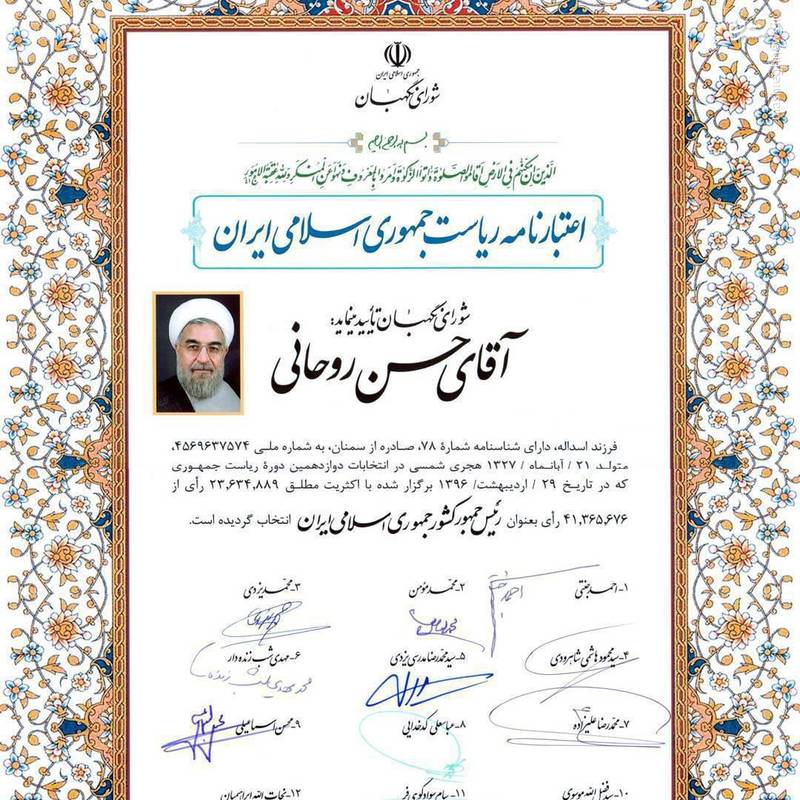 جمهوری اسلامی ایران
شورای نگهبان
بسم الله الرحمن الرحیم
الَّذینَ اِن مَکَّنّٰهُم فِی الاَرضِ اَقامُوا الصَّلوٰةَ وَ ءاتَوُا الزَّکوٰةَ وَ اَمَروا بِالمَعروفِ وَ نَهَوا عَنِ المُنکَرِ وَ لِلّٰهِ عٰقِبَةُ الاُمور
اعتبارنامه ریاست جمهوری اسلامی ایران
شورای نگهبان تأیید مینماید:
آقای حسن روحانی
فرزند اسداله، دارای شناسنامه شمارهٔ ۷۸، صادره از سمنان، به شماره ملی ۴۵۶۹۶۳۷۵۷۴،
متولد ۲۱ / آبانماه / ۱۳۲۷ هجری شمسی در انتخابات دوازدهمین دورهٔ ریاست جمهوری
که در تاریخ ۲۹ / اردیبهشت/ ۱۳۹۶ برگزار شده با اکثریت مطلق ۲۳,۶۳۴,۸۸۹ رأی از
۴۱,۳۶۵,۶۷۶ رأی بعنوان رئیس جمهور کشور جمهوری اسلامی ایران انتخاب گردیده است.
۱- احمد جنتی ۲- محمد مؤمن ۳- محمد یزدی
۴- سید محمود هاشمی شاهرودی ۵- سید محمدرضا مدرسی یزدی ۶- مهدی شب زنده دار
۷- محمدرضا علیزاده ۸- عباسعلی کدخدایی ۹- محسن اسماعیلی
۱۰- سید فضل الله موسوی ۱۱- سام سوادکوهی فر ۱۲- نجات الله ابراهیمیان